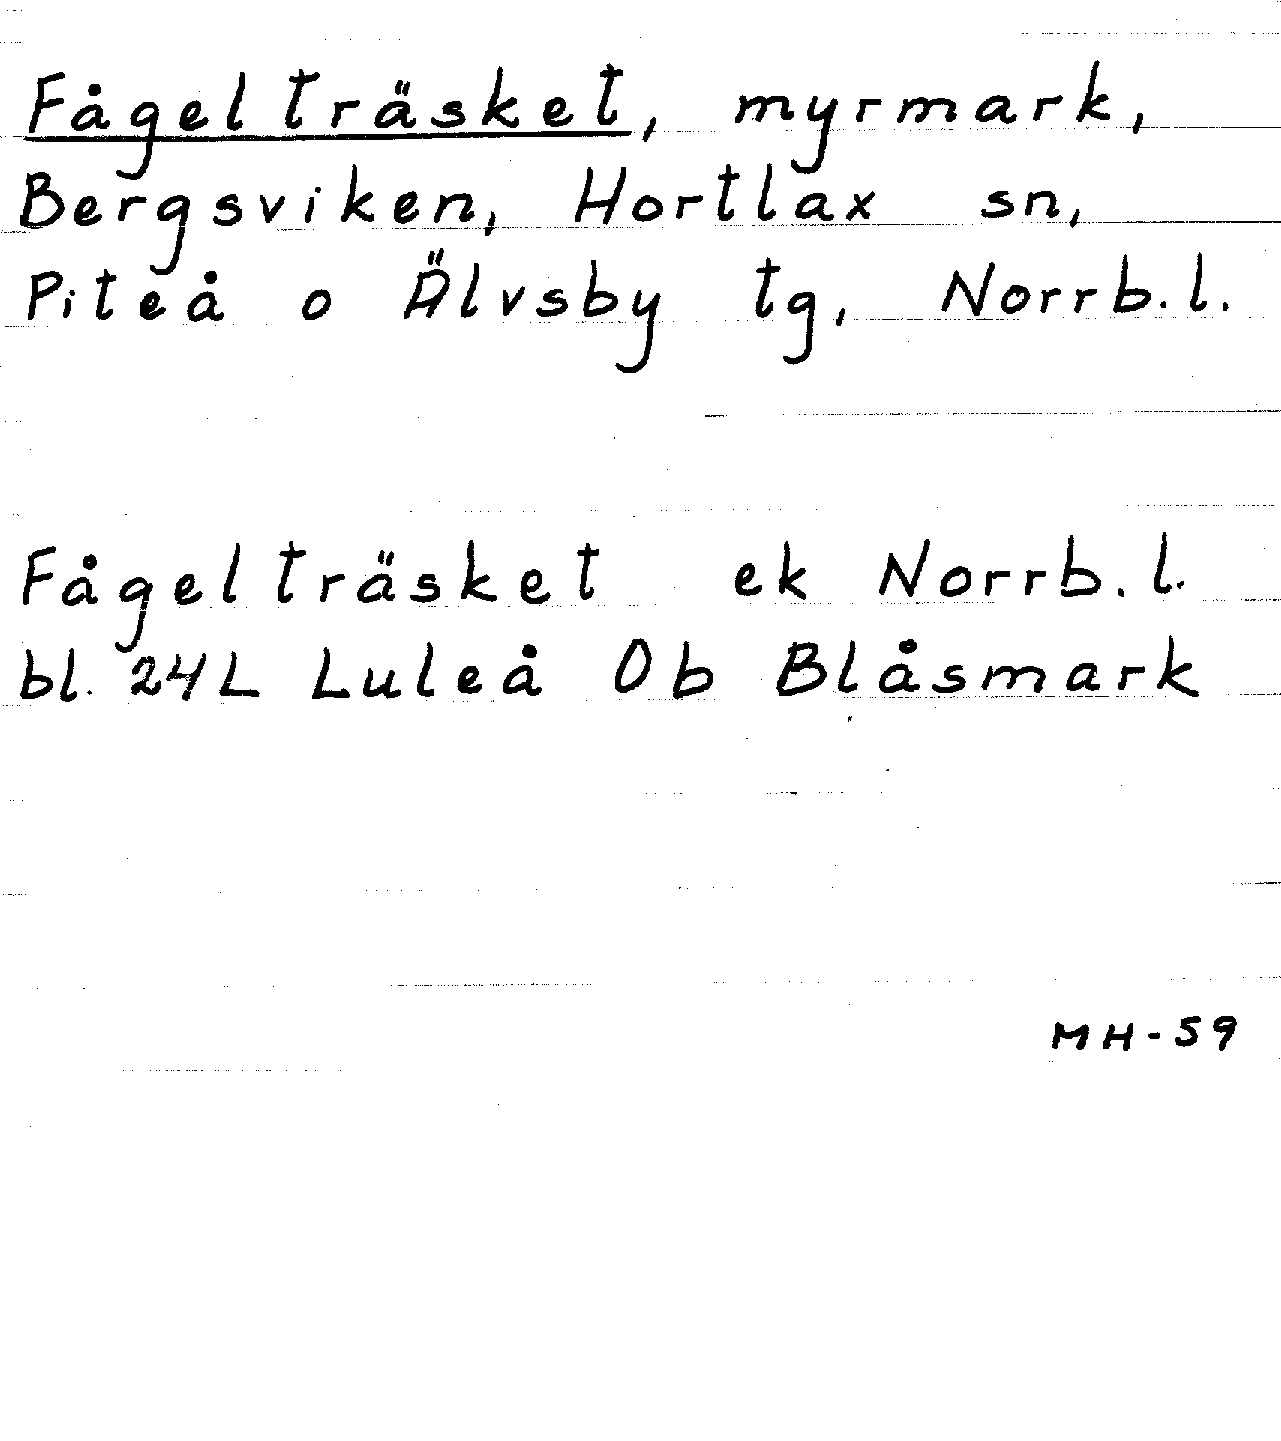 Fågelträsket, myrmark,
Bergsviken, Hortlax sn,
Piteå o Älvsby tg, Norrb.l.
Fågelträsket ek Norrb.l.
bl. 24L Luleå 0b Blåsmark
MH-59